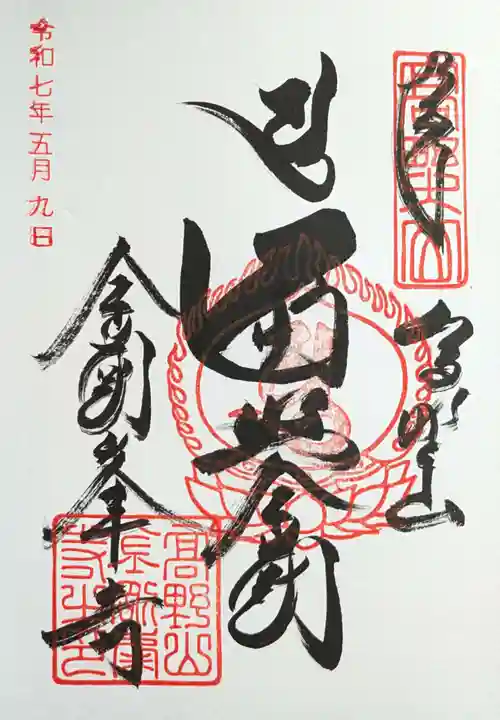 奉拝
高野山
遍照金剛
金剛峯寺
高野山
金剛峯
寺之印
令和七年五月九日